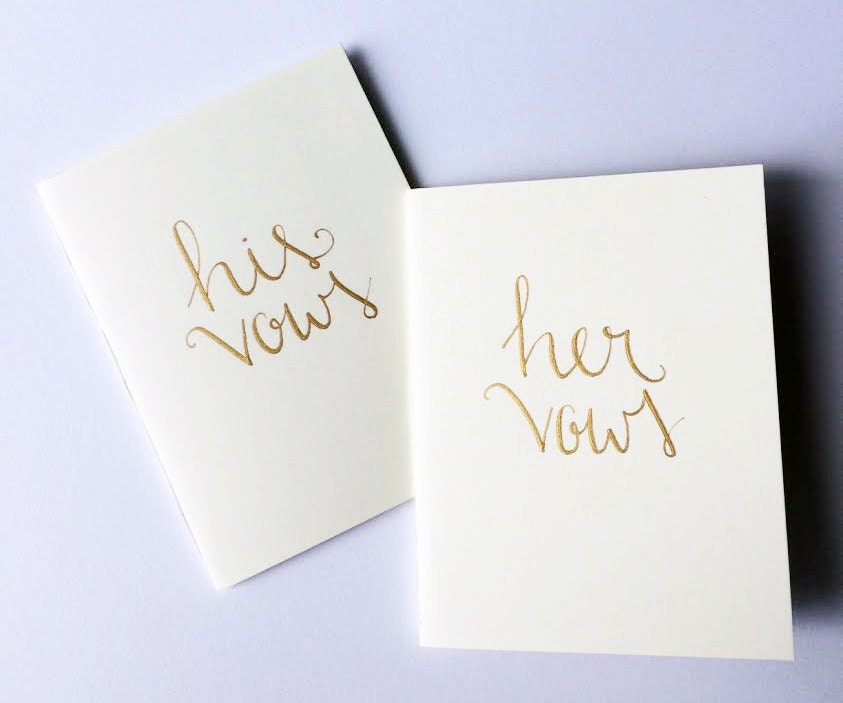 his
vows
her
vows